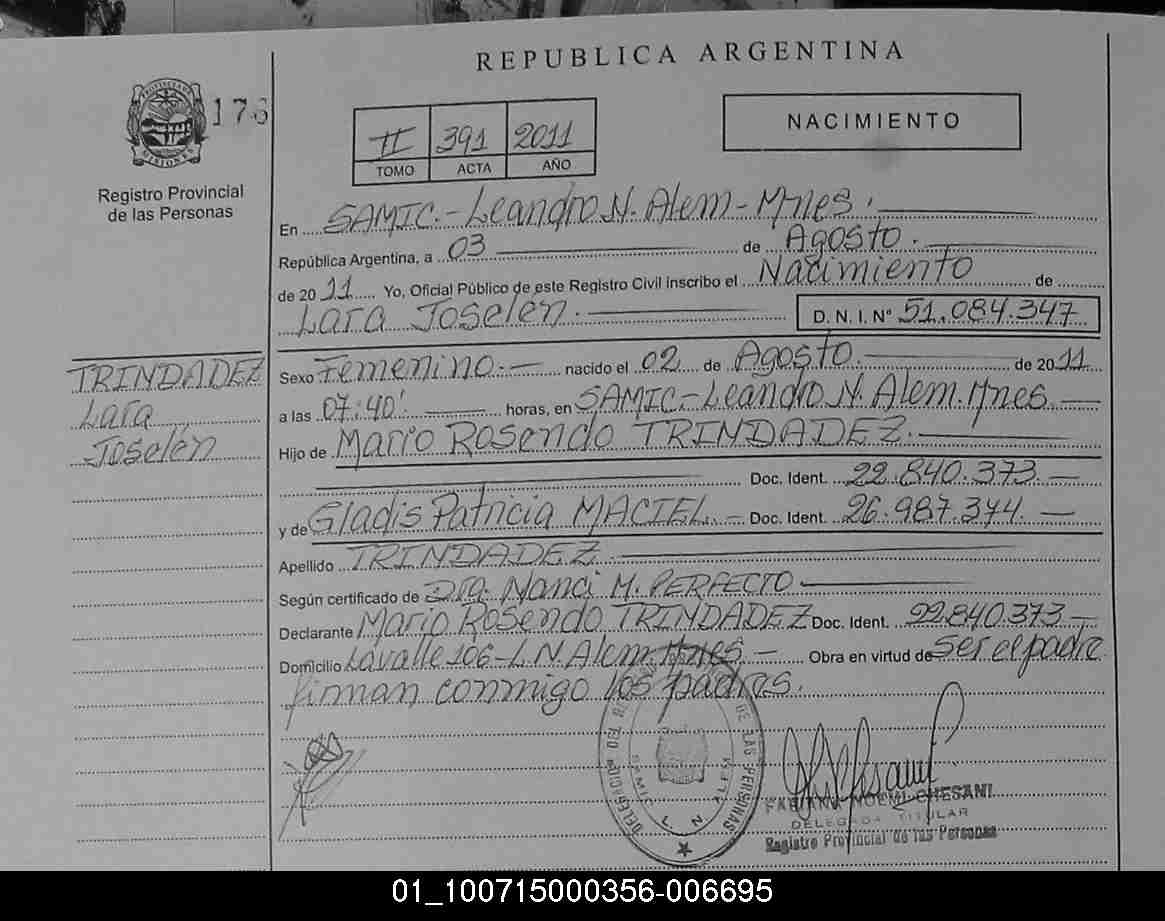 REPUBLICA ARGENTINA
PROVINCIA DE
MISIONES
176
Registro Provincial
de las Personas
II 391 2011
TOMO ACTA AÑO
NACIMIENTO
En SAMIC.-Leandro N. Alem-Mnes.
República Argentina, a 03 de Agosto.
de 2011 Yo, Oficial Público de este Registro Civil inscribo el Nacimiento de
Lara Joselén. D. N. I. Nº 51.084.347
TRINDADEZ
Lara
Joselén
Sexo Femenino.- nacido el 02 de Agosto. de 2011
a las 07:40' horas, en SAMIC.-Leandro N. Alem.Mnes
Hijo de Mario Rosendo TRINDADEZ.
Doc. Ident. 22.840.373.
y de Gladis Patricia MACIEL.- Doc. Ident. 26.987.374.
Apellido TRINDADEZ
Según certificado de Dra. Nanci M. PERFECTO
Declarante Mario Rosendo TRINDADEZ Doc. Ident. 22.840.373
Domicilio Lavalle 106-L.N.Alem.Mnes.- Obra en virtud de ser el padre
firman conmigo los padres.
DE LAS PERSONAS
SAMIC L. N. ALEM
FABIANA NOEMI CHESANI
DELEGADA TITULAR
Registro Provincial de las Personas
01_100715000356-006695